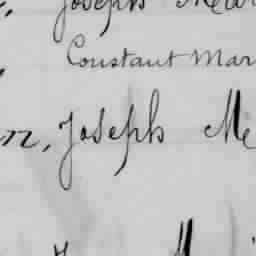 Joseph
Constant Mar
n, Joseph Me